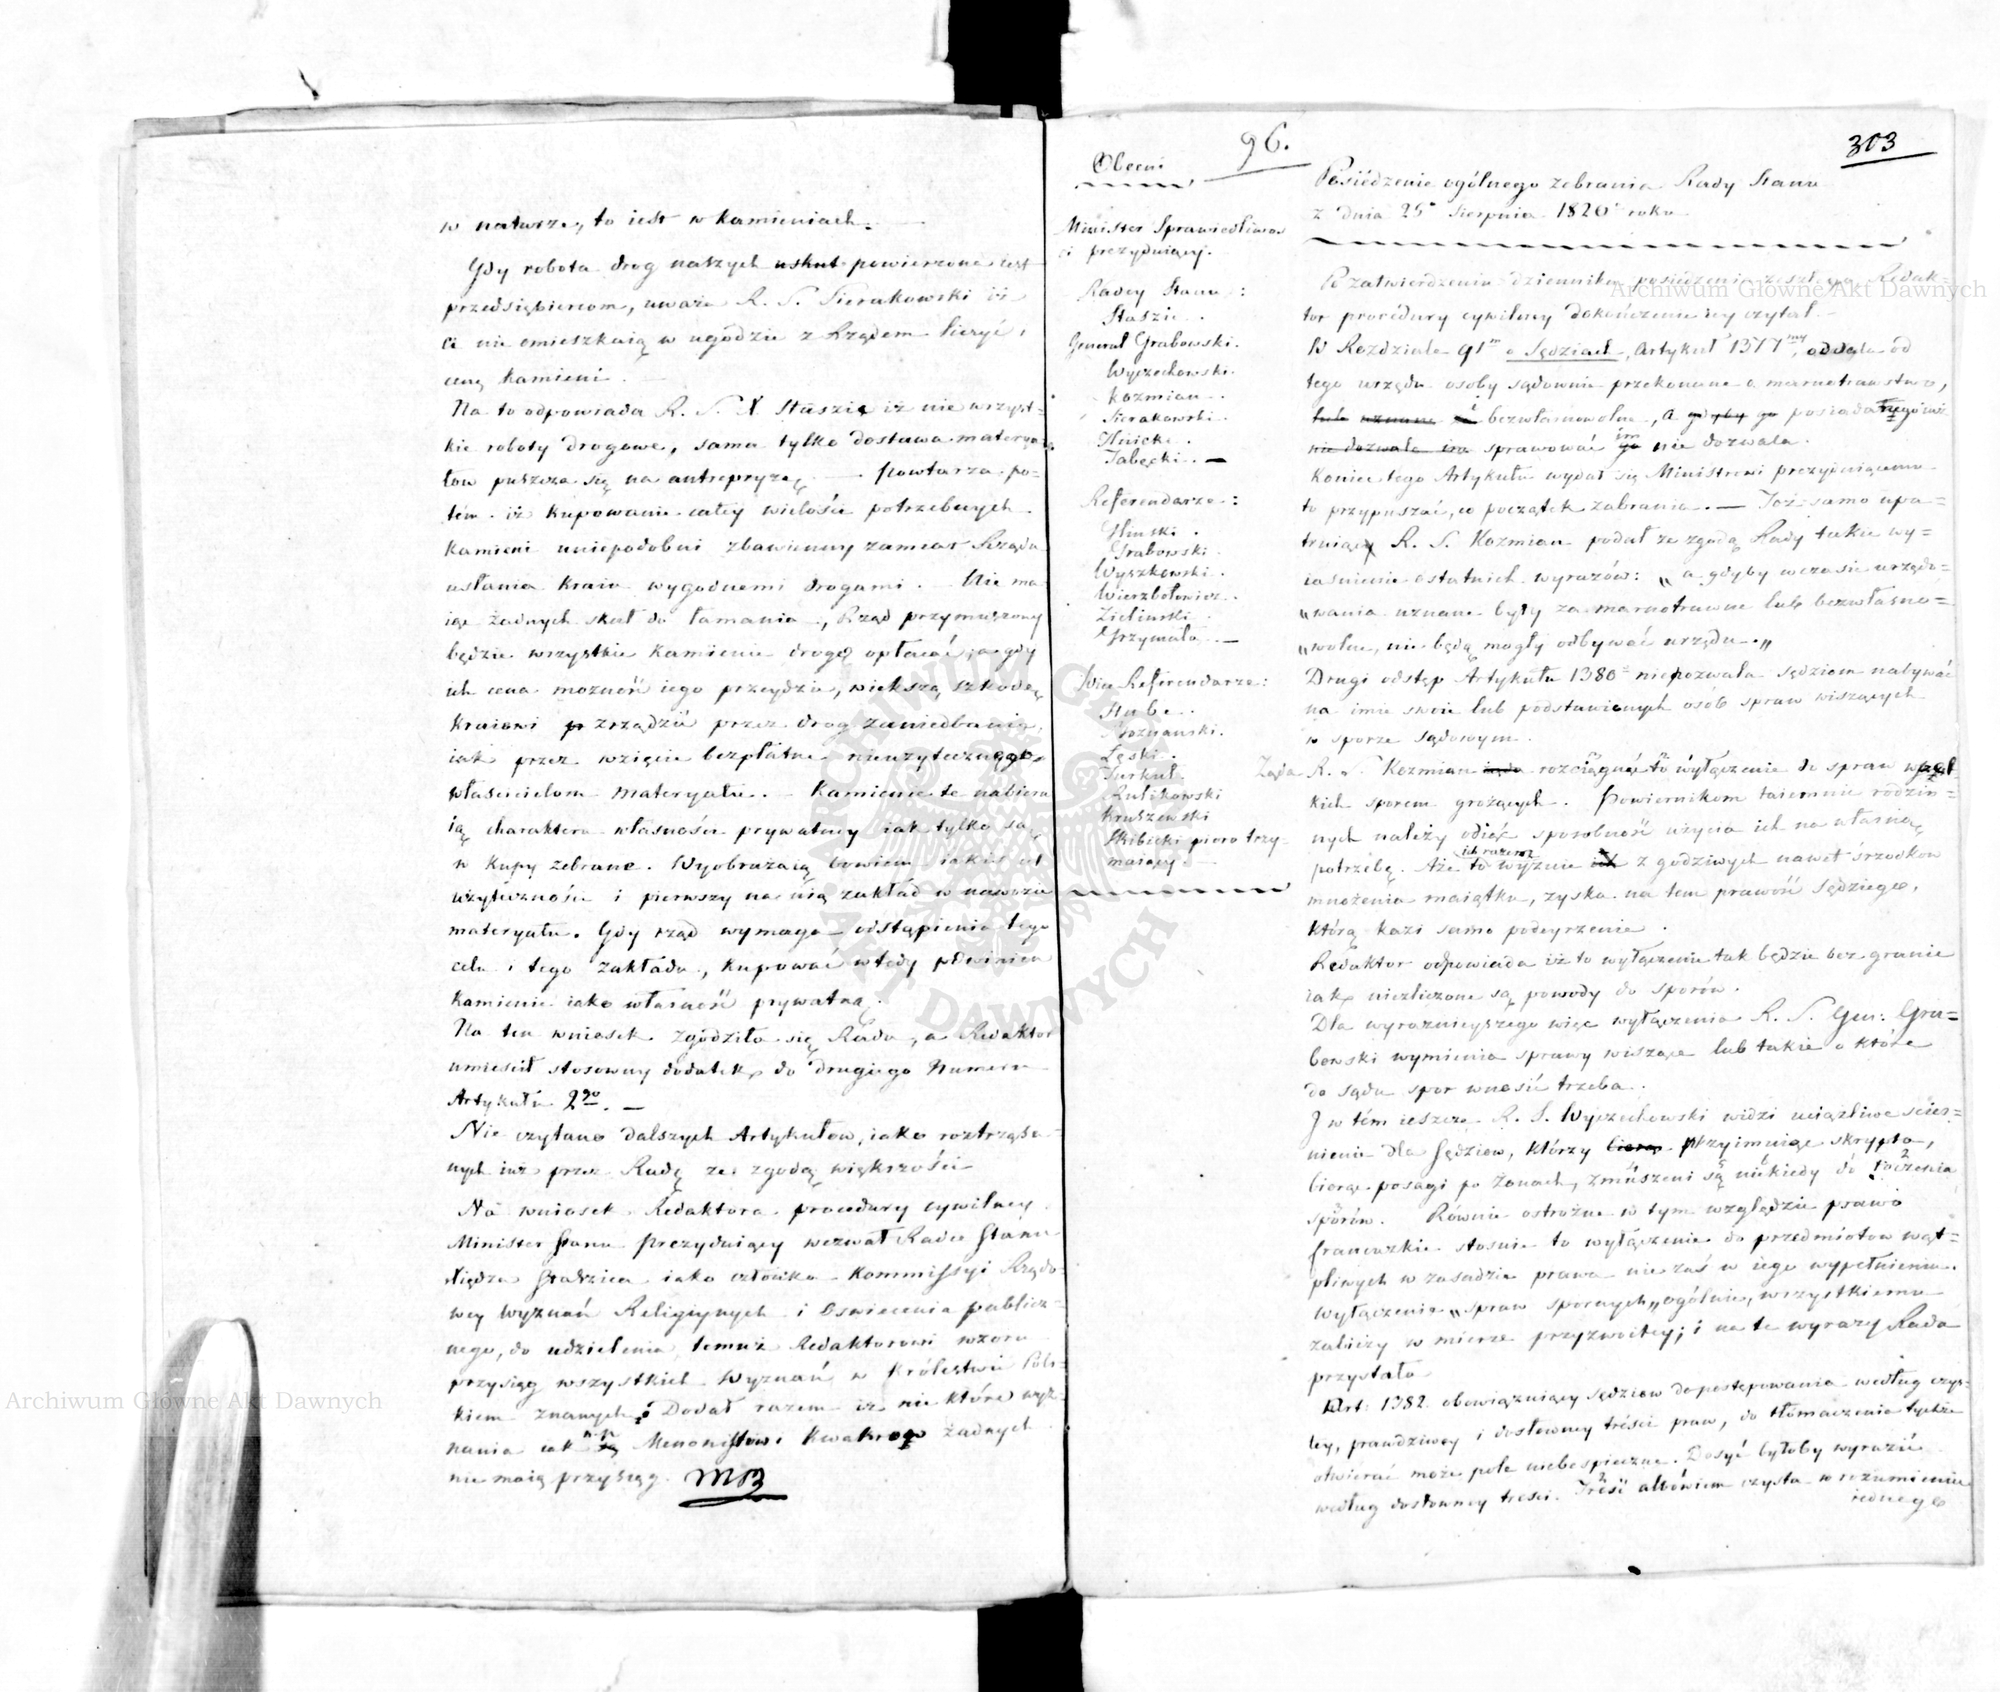 w naturze, to iest w kamieniach.
Gdy robota drog naszych uskut powierzona iest
przedsiębiercom, uważa R. S. Sierakowski iż
ci nie omieszkaią w ugodzie z Rządem liczyć
cenę kamieni.
Na to odpowiada R. S. X. Staszic iż nie wszyst=
kie roboty drogowe, sama tylko dostawa materya=
łow puszcza się na antrepryzę. — Powtarza po=
tém iż kupowanie całey wielości potrzebnych
kamieni uniepodobni zbawienny zamiar Rządu
usłania kraiu wygodnemi drogami. Nie ma
iąc żadnych skał do łamania, Rząd przymuszony
będzie wszystkie kamienie drogo opłacać, a gdy
ich cena możność iego przeydzie, większą szkodę
kraiowi zrządzi przez drog zaniedbanie,
iak przez wzięcie bezpłatne nieużytecznego
właścicielom materyału. — Kamienie te nabiera
ią charakteru własności prywatney iak tylko są
w kupy zebrane. Wyobrażaią bowiem iakiś cel
użyteczności i pierwszy na nią zakład w nawozie
materyału. Gdy rząd wymaga odstąpienia tego
celu i tego zakładu, kupować wtedy powinien
kamienie iako własność prywatną.
Na ten wniosek zgodziła się Rada, a Redaktor
umieścił stosowny dodatek do drugiego Numeru
Artykułu 2go. —
Nie czytano dalszych Artykułow, iako roztrząsa=
nych iuż przez Radę za zgodą większości
Na wniosek Redaktora procedury cywilney
Minister Stanu Prezyduiący wezwał Radcę Stanu
Xiędza Staszica iako członka Kommissyi Rządo=
wey Wyznań Religiynych i Oswiecenia publicz=
nego, do udzielenia temuż Redaktorowi wzoru
przysiąg wszystkich Wyznań w Królestwie Pols=
kiem znanych. Dodał razem iż nie które wyz=
nania iak np Menonistow i Kwakrow żadnych
nie maią przysiąg. MB
96.
303
Obecni
Minister Sprawiedliwoś
ci prezyduiący.
Radcy Stanu:
Staszic.
Generał Grabowski.
Wyczechowski.
Kozmian.
Sierakowski.
Gliwicki.
Tabęcki. —
Referendarze:
Hinski.
Grabowski.
Wyszkowski.
Wierzbołowicz.
Zieliński.
Grzymała. —
Vice Referendarze:
Hube.
Poznański.
Łęski.
Turkuł.
Rulikowski
Kruszewski
Skibicki pioro trzy=
maiący.
Posiedzenie ogólnego zebrania Rady Stanu
z dnia 25o Sierpnia 1820 roku
Po zatwierdzeniu dziennika posiedzenia zeszłego Redak=
tor procédury cywilney dokończenie iey czytał.
W Rozdziale 91m o Sędziach, Artykuł 1377my, oddala od
tego urzędu osoby sądownie przekonane o marnotrawstwo,
lub uznane za i bezwłasnowolne, a gdyby go posiadały
nie dozwala im sprawować go im nie dozwala.
Koniec tego Artykułu wydał się Ministrowi prezyduiącemu
to przypuszać, co początek zabrania. — Toż samo upa=
truiący R. S. Kozmian podał ze zgodą Rady takie wy=
iaśnienie ostatnich wyrazów: „a gdyby w czasie urzędo=
„wania uznane były za marnotrawne lub bezwłasno=
„wolne, nie będą mogły odbywać urzędu.„
Drugi odstęp Artykułu 1380 nie pozwala sędziom nabywać
na imie swoie lub podstawionych osób spraw wiszących
w sporze sądowym.
Żąda R. S. Kozmian żąda rozciągnąć to wyłączenie do spraw wszel
kich sporem grożących. Powiernikom taiemnic rodzin=
nych należy odiąć sposobność użycia ich na własną
potrzebę. Aże to wyzuie ich razem z godziwych nawet srzodkow
mnożenia maiątku, zyska na tem prawość sędziego,
którą kazi samo podeyrzenie.
Redaktor odpowiada iż to wyłączenie tak będzie bez granic
iak niezliczone są powody do sporów.
Dla wyrazniejszego więc wyłączenia R. S. Gen: Gra=
bowski wymienia sprawy wiszące lub takie o które
do sądu spor wnosić trzeba.
I w tém ieszcze R. S. Wyczechowski widzi uciążliwe ścieś=
nienie dla Sędziow, którzy biorąc przyimuiąc skrypta,
biorąc posagi po żonach, zmuszeni są niekiedy do toczenia
sporów. Równie ostrożne w tym względzie prawo
francuzkie stosuie to wyłączenie do przedmiotow wąt=
pliwych w zasadzie prawa nie zaś w iego wypełnieniu.
Wyłączenie „spraw spornych„ ogólnie, wszystkiemu
zabieży w mierze przyzwoitey; i na te wyrazy Rada
przystała
Art: 1382 obowiązuiący sędziow do postępowania według czys=
tey, prawdziwey i dosłowney tréści praw, do tłómaczenia tychże
otwierać może pole niebespieczne. Dosyć byłoby wyrazić
według dosłowney treści. Treść albowiem czysta w rozumieniu
iednego
Archiwum Główne Akt Dawnych
Archiwum Główne Akt Dawnych